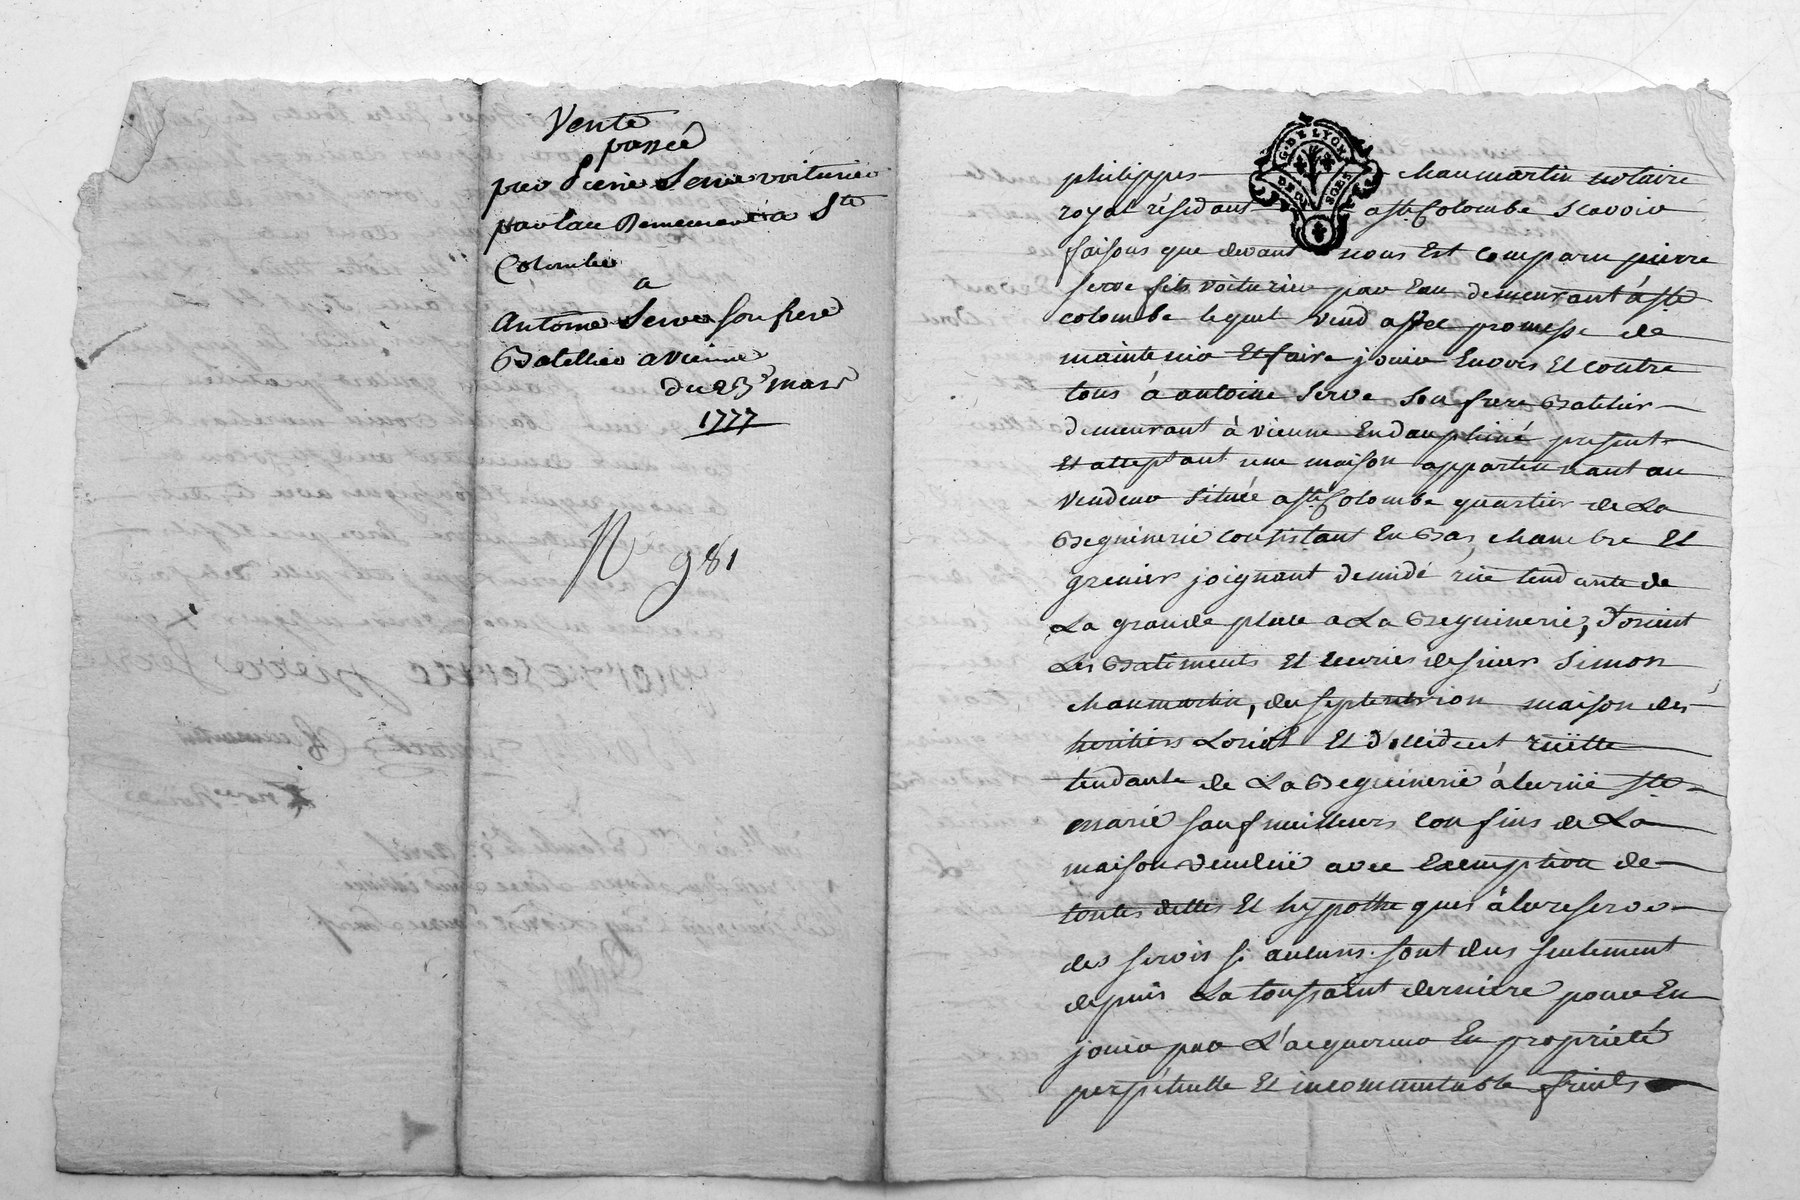 Vente
passée
par Pierre Serve voiturier
par Eau Demeurant a Ste
Colombe
a
Antoine Serve son frere
Batellier a vienne
du 23e mars
1777
No 981
G. DE LYON
DEUX SOLS
philippes chaumartin notaire
royal résidant a Ste Colombe scavoir
faisons que devant nous Est comparu pierre
serve fils voiturier par Eau demeurant à Ste
colombe lequel vend avec promesse de
maintenir Et faire jouir Envers Et contre
tous à antoine Serve son frere Batelier
demeurant à vienne En dauphiné present
Et acceptant une maison appartennant au
vendeur située a Ste Colombe quartier de La
Beguinerie consistant En Bas, chambre Et
grenier joignant de midi rüe tendante de
La grande place a La Beguinerie, d'orient
Les Batiments Et Ecuries de sieur Simon
chaumartin, de septentrion maison des
heritiers Loriol Et d'occident rüette
tendante de La Beguinerie à la rüe Ste
marie sauf meilleurs confins de La
maison vendüe avec Exemption de
toutes dettes Et hypotheques à la reserve
des servis si aucuns sont dus seulement
depuis La toussaint derniere pour En
jouir par L'acquereur En propriété
perpétuelle Et incommutable fruits